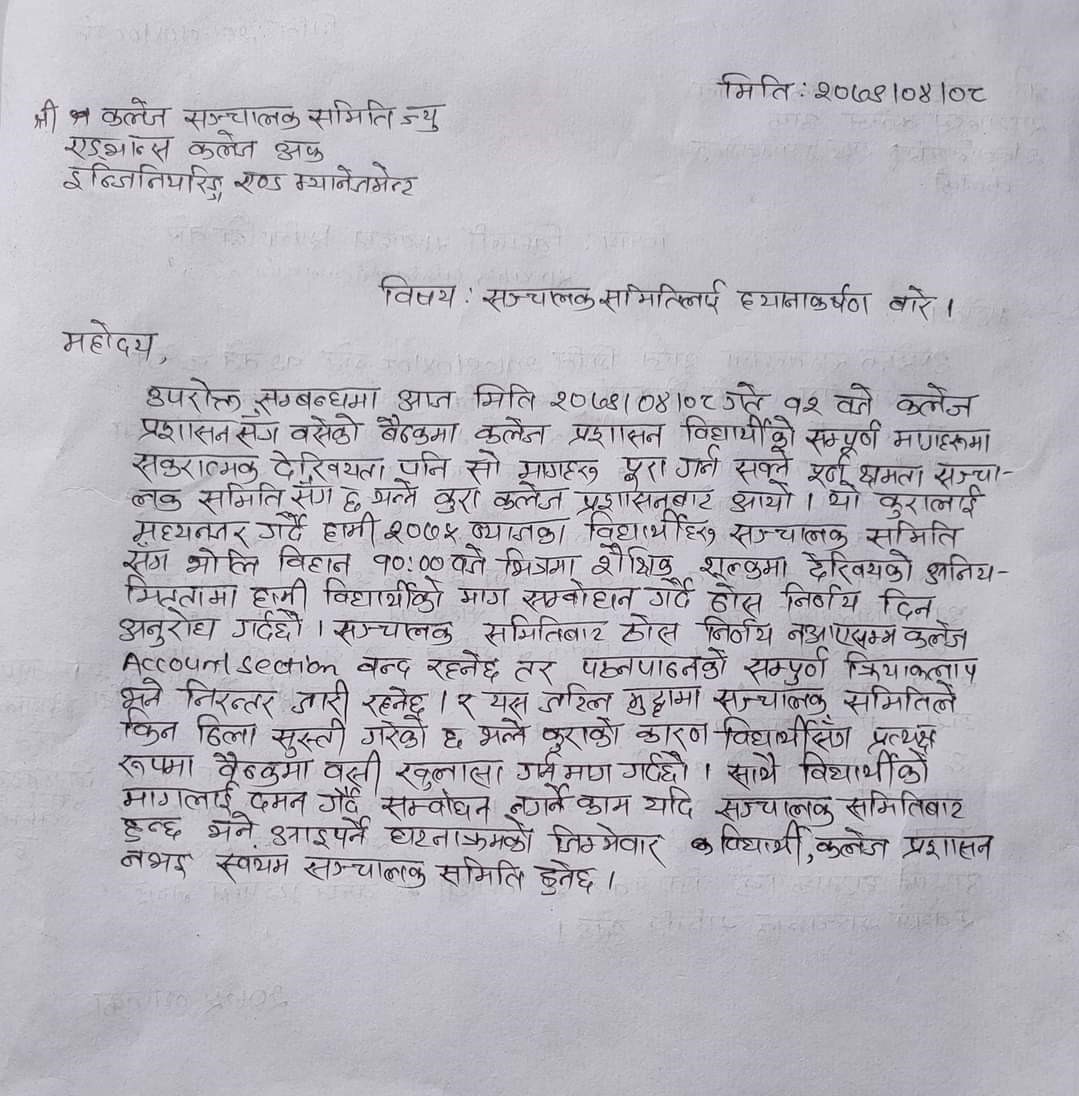 मिति : २०७९।०४।०८
श्री कलेज सञ्चालक समिति ज्यु
एड्भान्स कलेज अफ
इन्जिनियरिङ्ग एण्ड म्यानेजमेन्ट
विषय : सञ्चालक समितिलाई ध्यानाकर्षण बारे ।
महोदय,
उपरोक्त सम्बन्धमा आज मिति २०७९।०४।०८ गते १२ बजे कलेज
प्रशासनसँग बसेको बैठकमा कलेज प्रशासन विद्यार्थीको सम्पूर्ण मागहरुमा
सकरात्मक देखियता पनि सो मागहरु पूरा गर्न सक्ने पूर्ण क्षमता सञ्चा-
लक समिति सँग छ भन्ने कुरा कलेज प्रशासनबाट आयो । यो कुरालाई
मध्यनजर गर्दै हामी २०७५ ब्याजका विद्यार्थीहरु सञ्चालक समिति
सँग भोलि विहान १०:०० बजे भित्रमा शैक्षिक शुल्कमा देखियको अनिय-
मित्ततामा हामी विद्यार्थीको माग सम्बोधन गर्दै ठोस निर्णय दिन
अनुरोध गर्दछौ । सञ्चालक समितिबाट ठोस निर्णय नआएसम्म कलेज
Account section बन्द रहनेछ तर पठनपाठनको सम्पुर्ण क्रियाकलाप
भने निरन्तर जारी रहनेछ । र यस जटिल मुद्दामा सञ्चालक समितिले
किन ढिला सुस्ती गरेको छ भन्ने कुराको कारण विद्यार्थीसँग प्रत्यक्ष
रूपमा बैठकमा बसी खुलासा गर्न माग गर्दछौ । साथै विद्यार्थीको
मागलाई दमन गर्दै सम्वोधन नगर्ने काम यदि सञ्चालक समितिबाट
हुन्छ भने आइपर्ने घटनाक्रमको जिम्मेवार विद्यार्थी, कलेज प्रशासन
नभई स्वयम सञ्चालक समिति हुनेछ ।